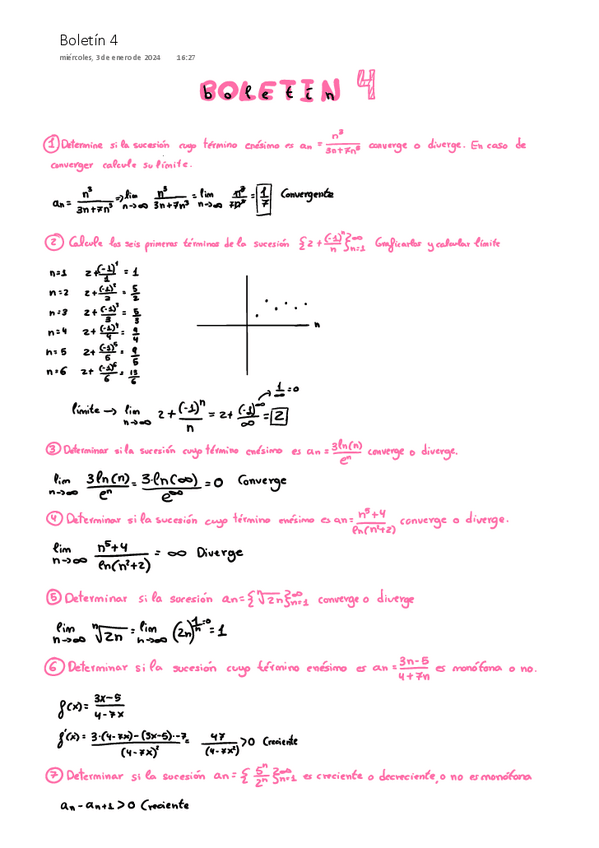 Boletín 4
miércoles, 3 de enero de 2024 16:27
BOLETIN 4
boletín
① Determine si la sucesión cuyo término enésimo es an = n³/(3n+7n³) converge o diverge. En caso de
converger calcule su límite.
an = n³/(3n+7n³) => lim n→∞ n³/(3n+7n³) = lim n→∞ n³/7n³ = 1/7 Convergente
② Calcule los seis primeros términos de la sucesión {2+(-1)ⁿ/n}∞n=1 Graficarlos y calcular límite
n=1 2+(-1)¹/1 = 1
n=2 2+(-1)²/2 = 5/2
n=3 2+(-1)³/3 = 5/3
n=4 2+(-1)⁴/4 = 9/4
n=5 2+(-1)⁵/5 = 9/5
n=6 2+(-1)⁶/6 = 13/6
n
1/∞ = 0
límite → lim n→∞ 2+(-1)ⁿ/n = 2+(-1)^∞/∞ = 2
③ Determinar si la sucesión cuyo término enésimo es an = 3ln(n)/eⁿ converge o diverge.
lim n→∞ 3ln(n)/eⁿ = 3·ln(∞)/e^∞ = 0 Converge
④ Determinar si la sucesión cuyo término enésimo es an = n⁵+4/ln(n²+2) converge o diverge.
lim n→∞ n⁵+4/ln(n²+2) = ∞ Diverge
⑤ Determinar si la sucesión an = {ⁿ√2n}∞n=1 converge o diverge
lim n→∞ ⁿ√2n = lim n→∞ (2n)^1/n→0 = 1
⑥ Determinar si la sucesión cuyo término enésimo es an = 3n-5/4+7n es monótona o no.
f(x) = 3x-5/4-7x
f'(x) = 3·(4-7x)-(3x-5)·-7/(4-7x)² = 47/(4-7x²) >0 Creciente
⑦ Determinar si la sucesión an = {5ⁿ/2ⁿ}∞n=1 es creciente o decreciente, o no es monótona
an - an+1 > 0 Creciente